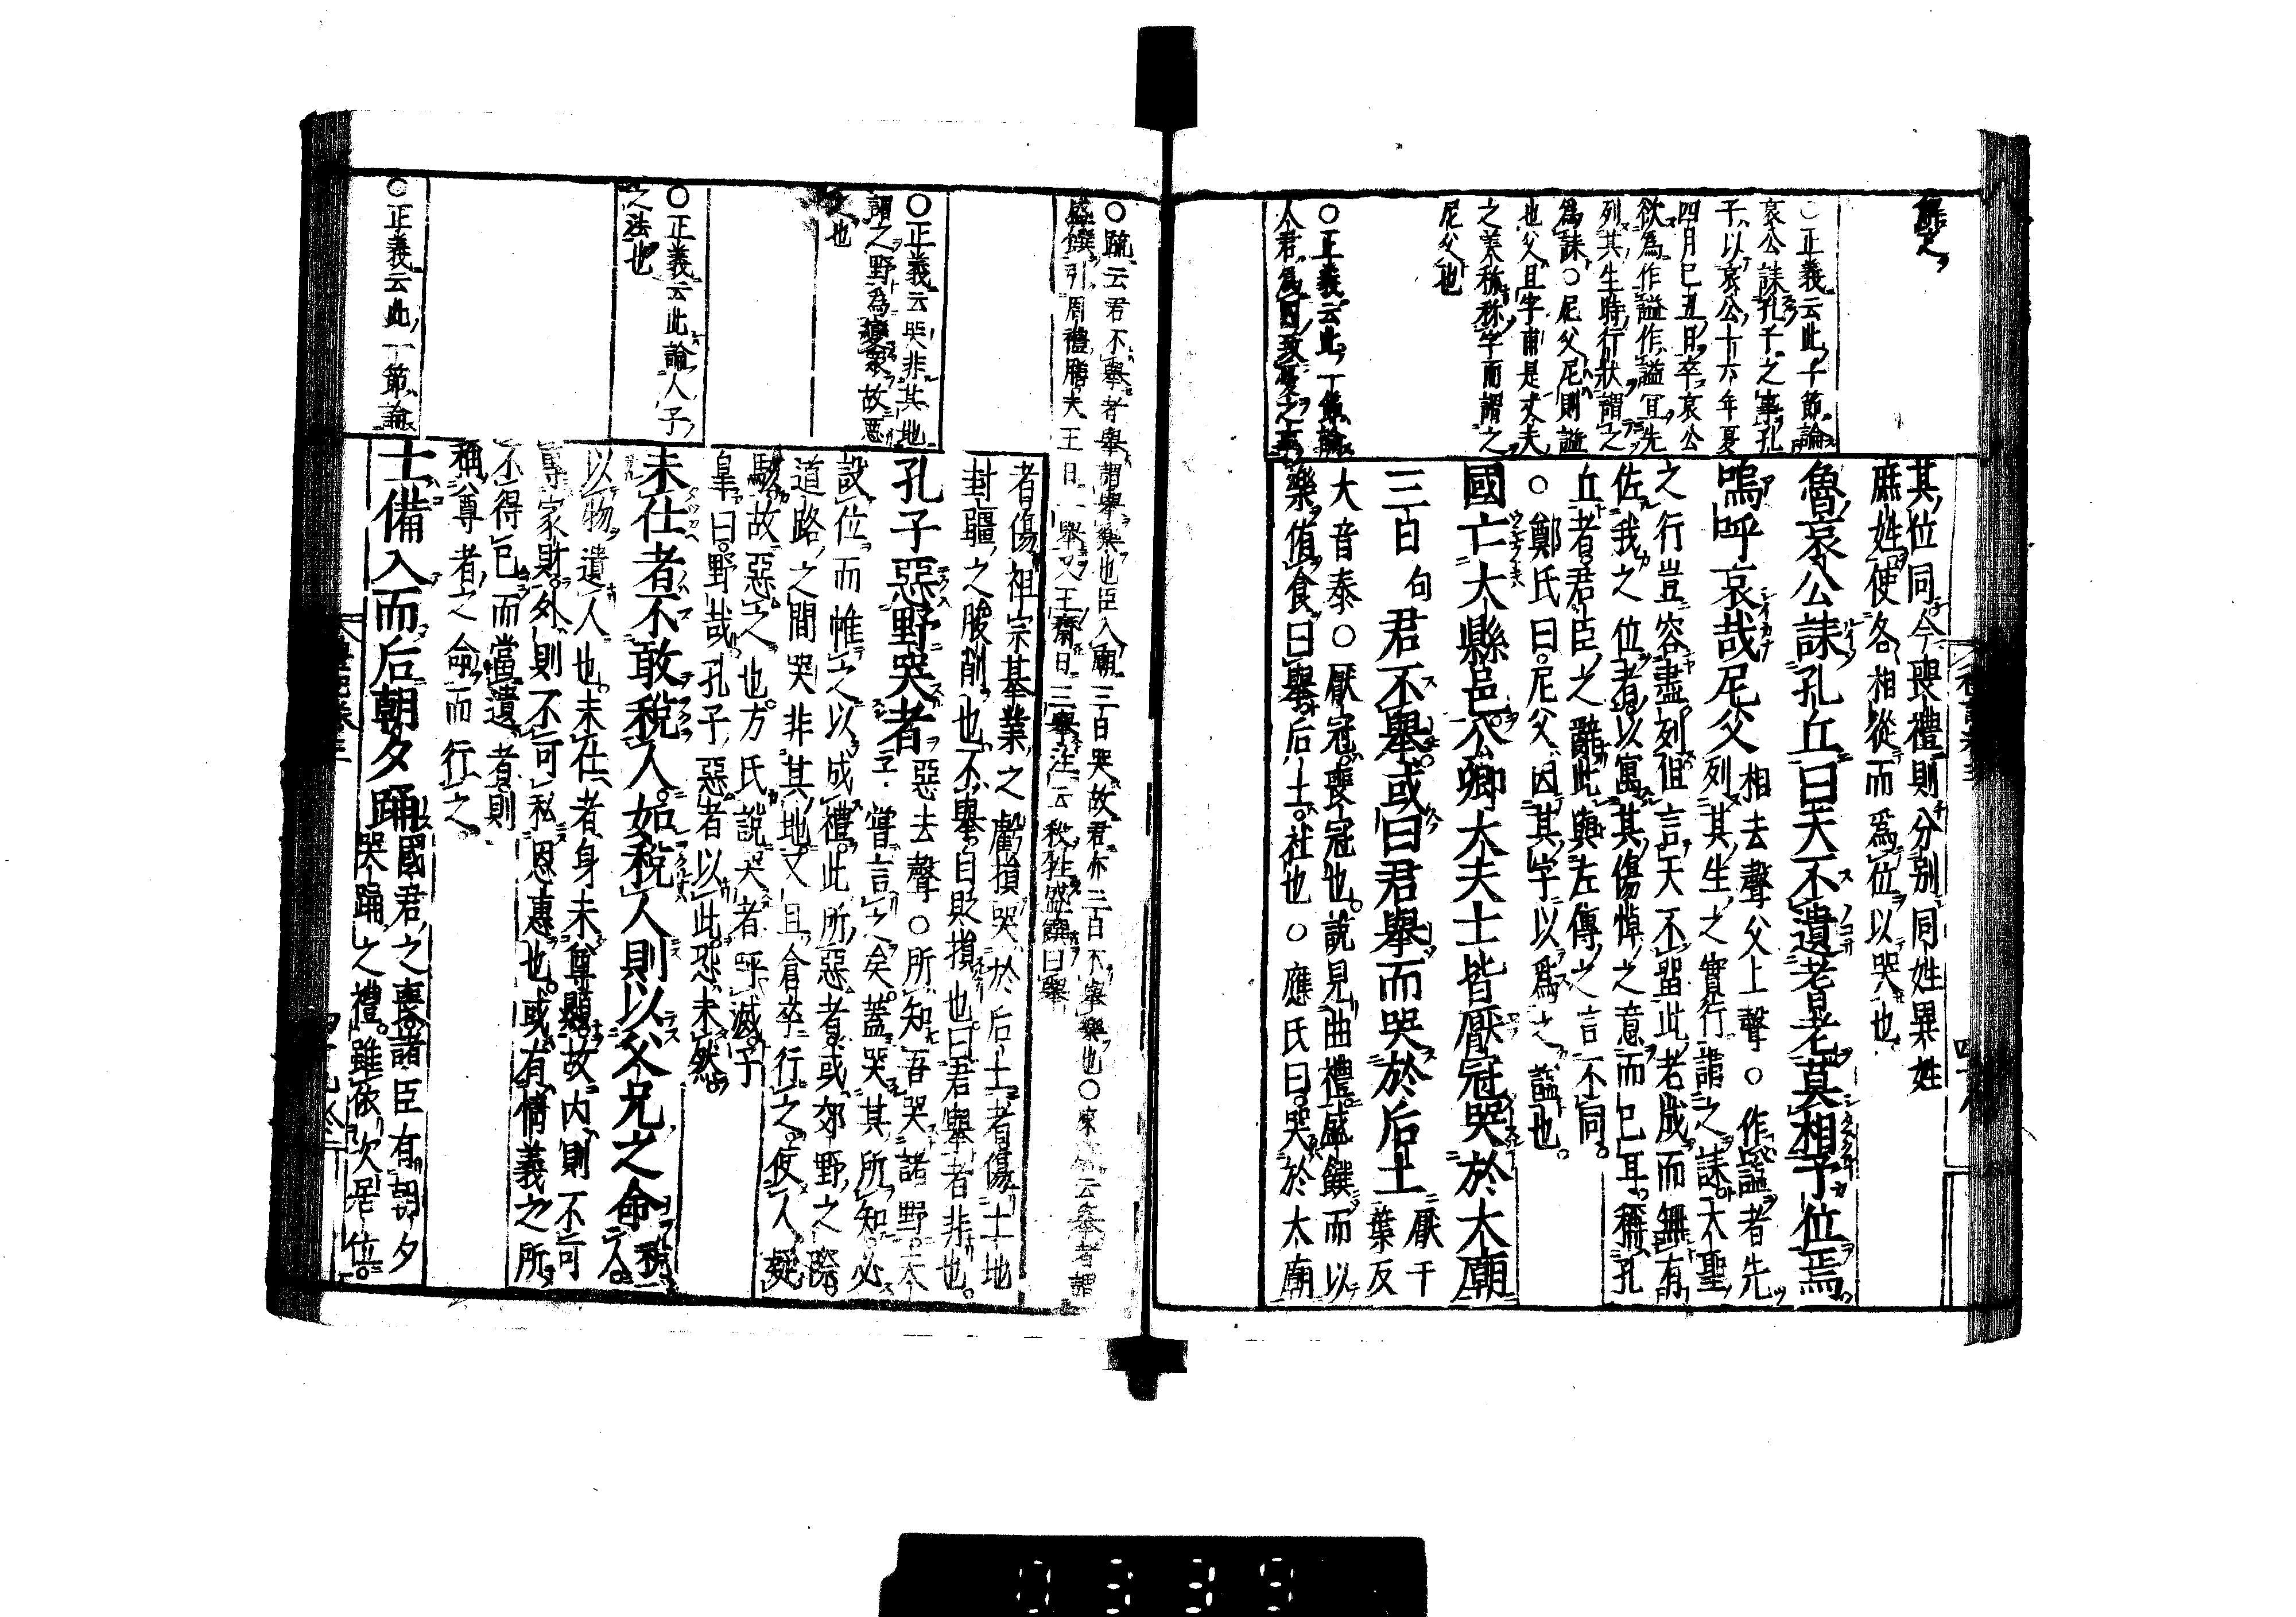 其位同今喪禮則分別同姓異姓
庶姓使各相從而爲位以哭也
魯哀公誄孔丘曰天不遺耆老莫相予位焉
嗚呼哀哉尼父
相去聲父上聲○作謚者先
列其生之實行謂之誄大聖
之行豈容盡列但言天不留此老成而無有
佐我之位者以寓其傷悼之意而已耳稱孔
丘者君臣之辭此與左傳之言不同
○鄭氏曰尼父因其字以爲之謚也
國亡大縣邑公卿大夫士皆厭冠哭於太廟
三日
句
君不舉或曰君舉而哭於后土
厭于
葉反
大音泰○厭冠喪冠也說見曲禮盛饌而以
樂侑食曰舉后土社也○應氏曰哭於太廟
○正義云此一節論
哀公誄孔子之事孔
子以哀公十六年夏
四月己丑日卒哀公
欲爲作謚作謚宜先
列其生時行狀謂之
爲誄○尼父尼則謚
也父且字甫是丈夫
之美稱稱字而謂之
尼父也
○正義云此一節論
○疏云君不舉者舉謂舉樂也臣入廟三日哭故君亦三日不舉樂也
盛饌引周禮膳夫王日一舉又王齋日三舉注云殺牲盛饌曰舉
者傷祖宗基業之虧損哭於后土者傷土地
封疆之朘削也不舉自貶損也曰君舉者非也
孔子惡野哭者
惡去聲○所知吾哭諸野夫
子嘗言之矣蓋哭其所知必
設位而帷之以成禮此所惡者或郊野之際
道路之間哭非其地又且倉卒行之使人疑
駭故惡之也方氏說哭者呼滅子
皐曰野哉孔子惡者以此恐未然
未仕者不敢稅人如稅人則以父兄之命
稅
人
以物遺人也未仕者身未尊顯故內則不可
專家財外則不可私恩惠也或有情義之所
不得已而當遺者則
稱尊者之命而行之
士備入而后朝夕踊
國君之喪諸臣有朝夕
哭踊之禮雖依次居位
○正義云哭非其地
謂之野爲變衆故惡
之也
○正義云此論人子
之法也
○正義云此一節論
0339